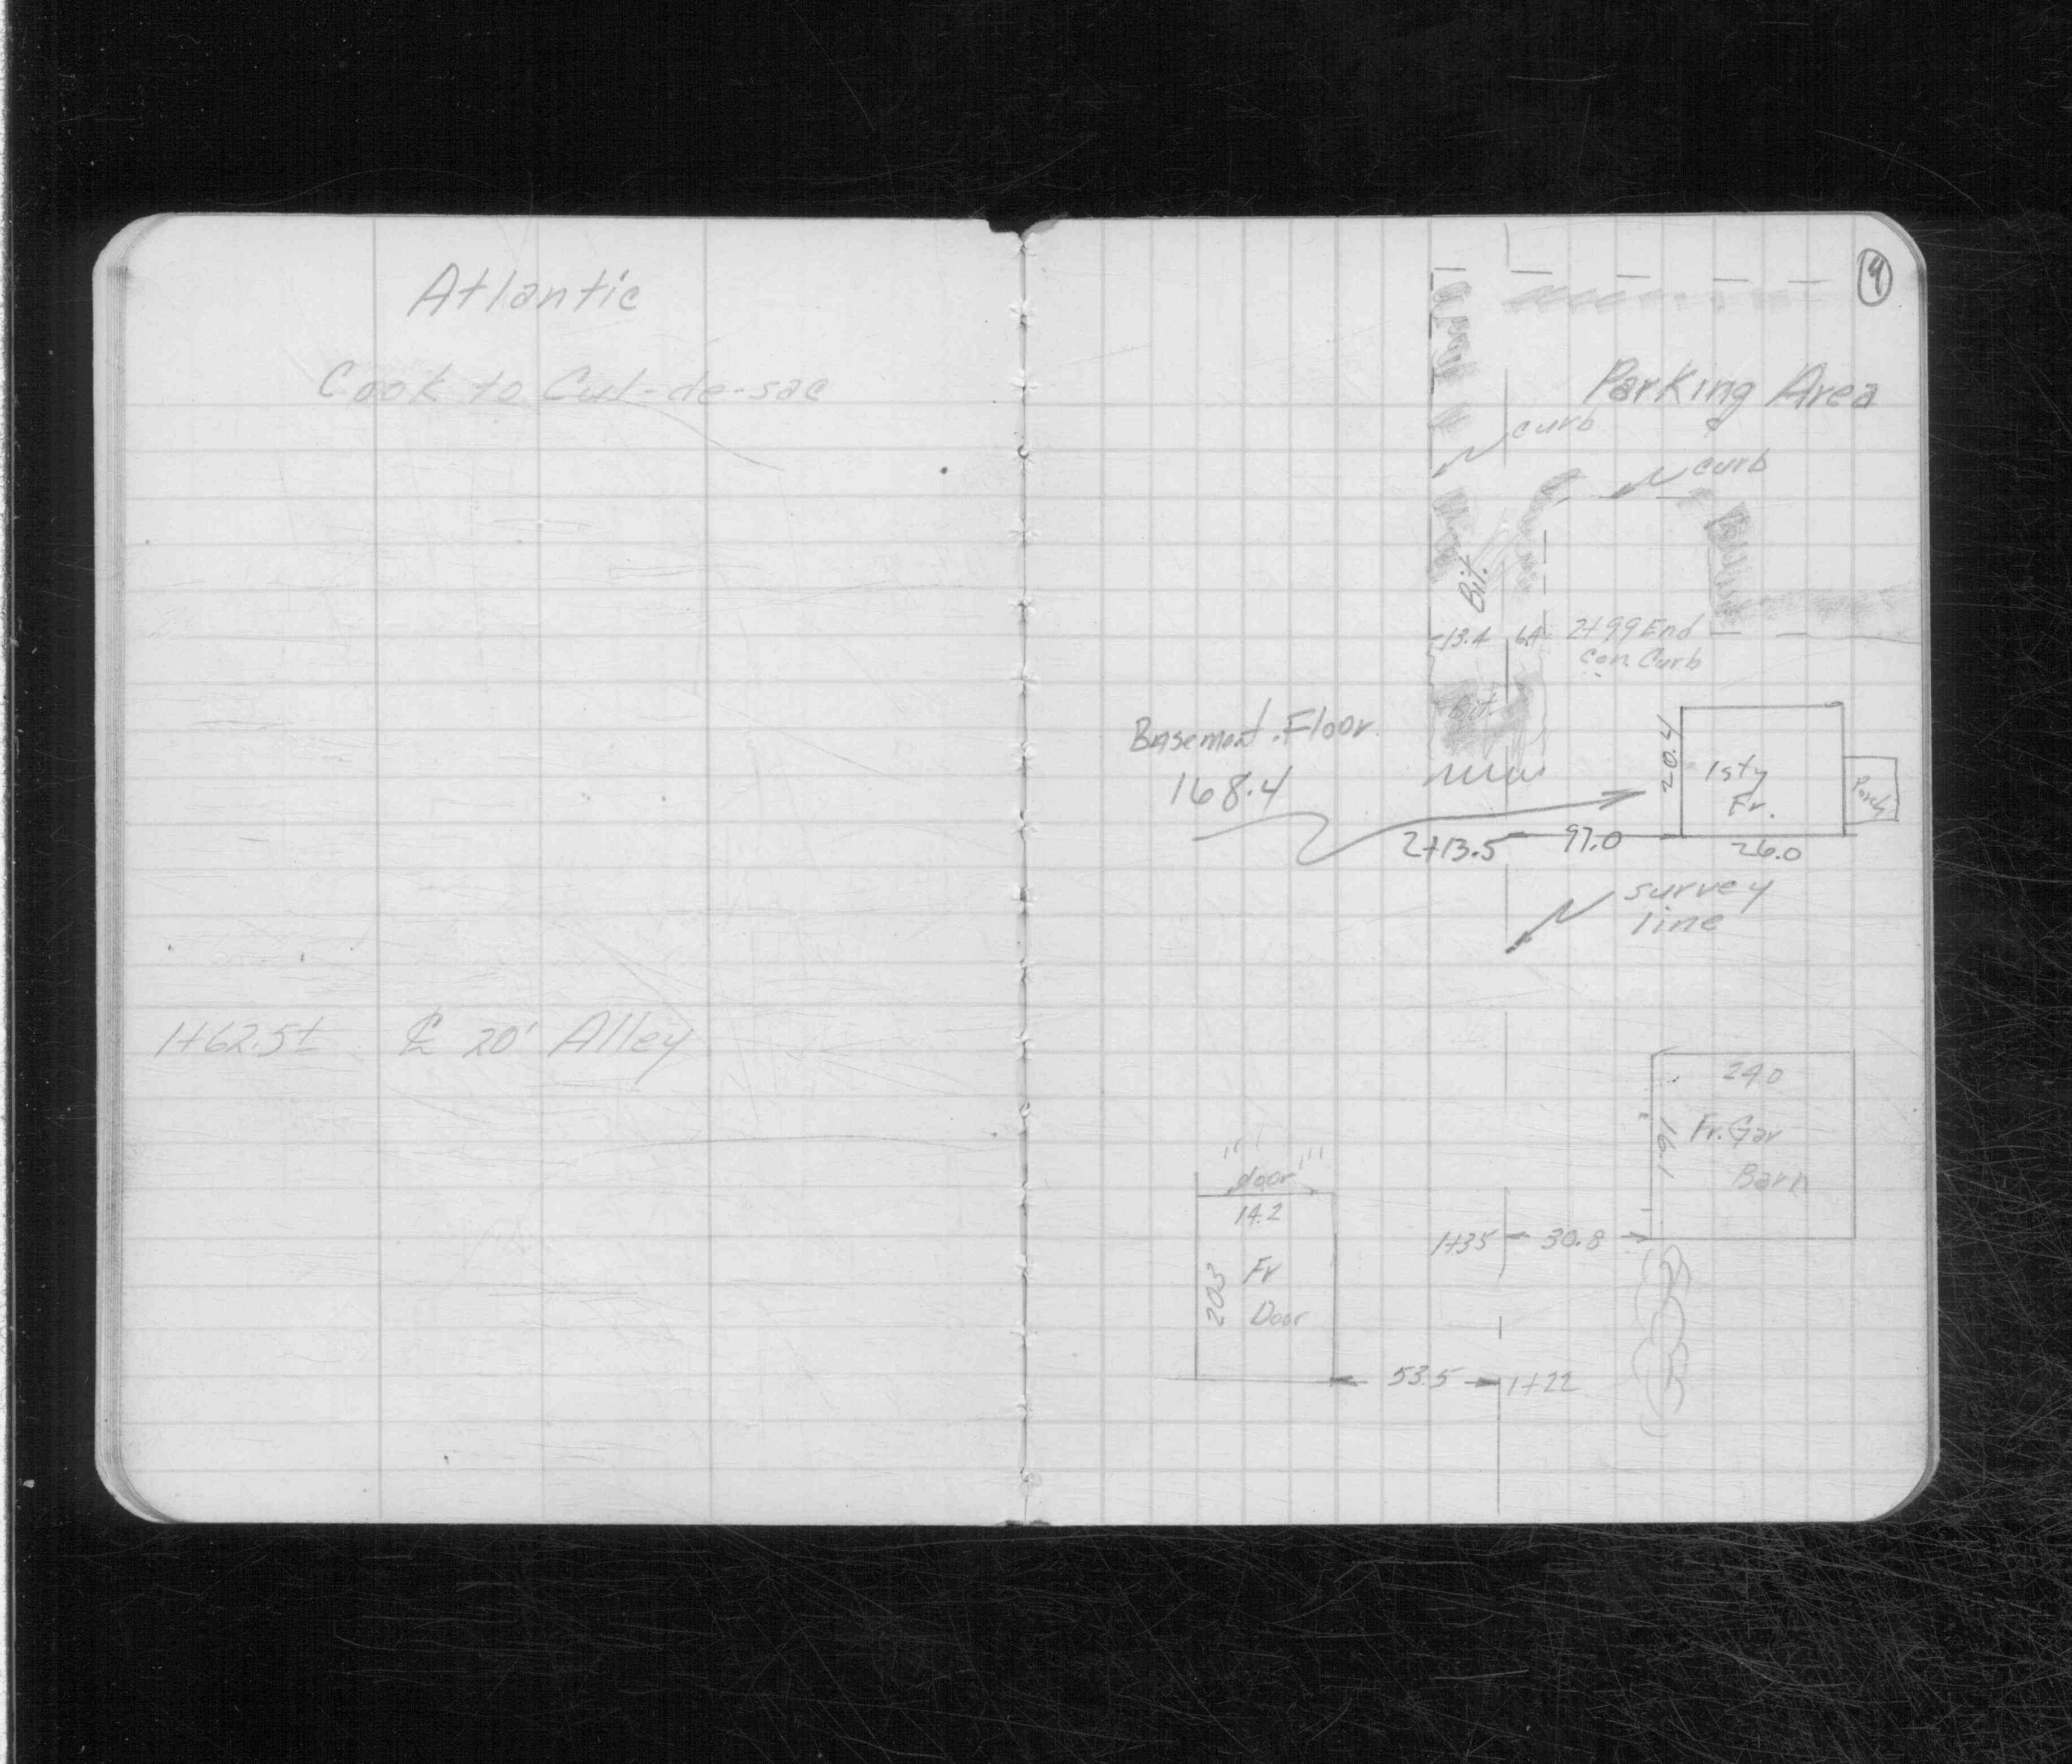 Atlantic
Cook to Cul-de-sac
1+62.5± ℄ 20' Alley
Parking Area
curb
curb
Bit.
13.4 6.4 2+99 End
con. Curb
Bit.
Basement Floor
168.4
20.4
1 sty
Fr.
Porch
2+13.5 97.0
26.0
survey
line
24.0
191
Fr. Gar
Barn
door
14.2
1+35 30.8
203
Fr
Door
53.5 1+22